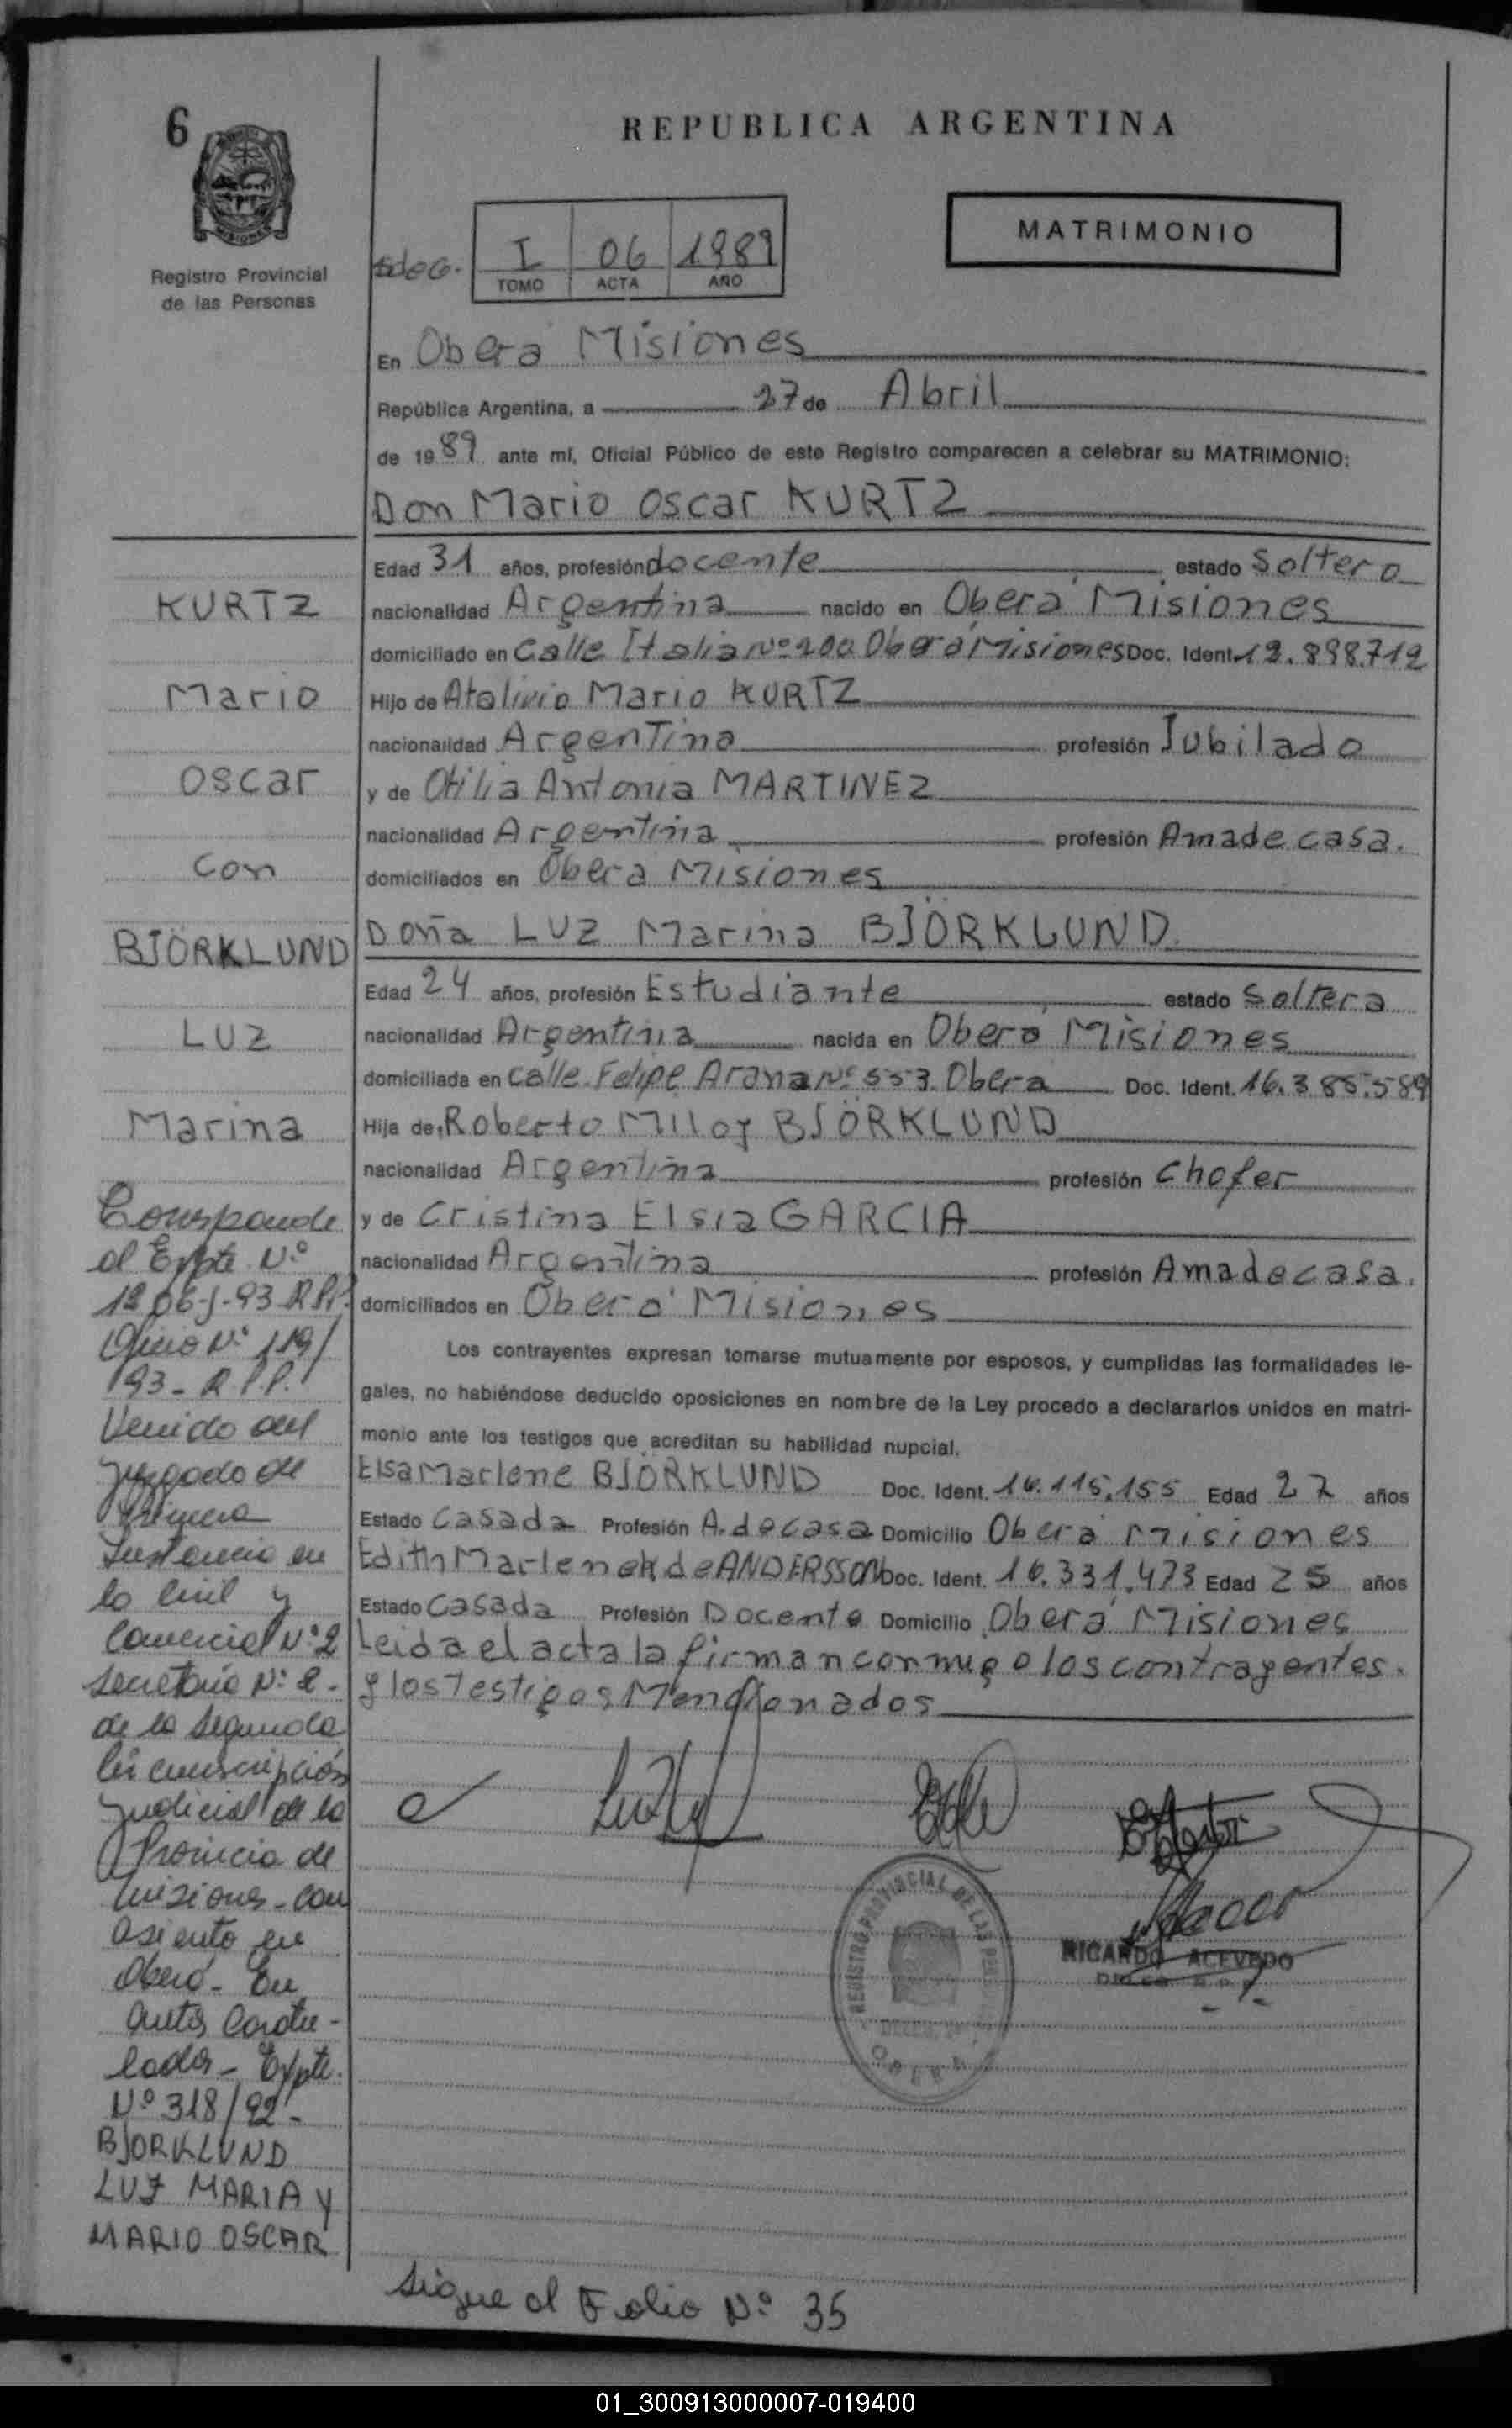 6
REPUBLICA ARGENTINA
MISIONES
Registro Provincial
de las Personas
I 06 1989
TOMO ACTA AÑO
MATRIMONIO
En Oberá Misiones
República Argentina, a 27 de Abril
de 1989 ante mí, Oficial Público de este Registro comparecen a celebrar su MATRIMONIO:
Don Mario Oscar KURTZ
Edad 31 años, profesión docente estado Soltero
nacionalidad Argentina nacido en Oberá Misiones
domiciliado en Calle Italia Nº 200 Oberá Misiones Doc. Ident. 12.898.712
Hijo de Atalivio Mario KURTZ
nacionalidad Argentina profesión Jubilado
y de Otilia Antonia MARTINEZ
nacionalidad Argentina profesión Ama de casa.
domiciliados en Oberá Misiones
Doña LUZ Marina BJÖRKLUND
Edad 24 años, profesión Estudiante estado Soltera
nacionalidad Argentina nacida en Oberá Misiones
domiciliada en calle Felipe Arana Nº 553 Oberá Doc. Ident. 16.385.589
Hija de Roberto Milloy BJÖRKLUND
nacionalidad Argentina profesión Chofer
y de Cristina Elsia GARCIA
nacionalidad Argentina profesión Ama de casa.
domiciliados en Oberá Misiones
Los contrayentes expresan tomarse mutuamente por esposos, y cumplidas las formalidades le-
gales, no habiéndose deducido oposiciones en nombre de la Ley procedo a declararlos unidos en matri-
monio ante los testigos que acreditan su habilidad nupcial.
Elsa Marlene BJÖRKLUND Doc. Ident. 16.115.155 Edad 27 años
Estado Casada Profesión A. de casa Domicilio Oberá Misiones
Edith Marlene de ANDERSSON Doc. Ident. 16.331.473 Edad 25 años
Estado Casada Profesión Docente Domicilio Oberá Misiones
Leida el acta la firman conmigo los contrayentes.
y los Testigos Mencionados
KURTZ
Mario
Oscar
con
BJÖRKLUND
LUZ
Marina
Corresponde
al Expte Nº
1206-J-93 R.P.P.
Oficio Nº 119/
93 - R.P.P.
Venido del
Juzgado de
Primera
Instancia en
lo Civil y
Comercial Nº 2
Secretaría Nº 2 -
de la Segunda
Circunscripción
Judicial de la
Provincia de
Misiones - con
asiento en
Oberá - En
autos Caratu-
lados - Expte.
Nº 318/92 -
BJORKLUND
LUZ MARIA Y
MARIO OSCAR
REGISTRO PROVINCIAL DE LAS
OBERA
RICARDO ACEVEDO
Sigue al Folio Nº 35
01_300913000007-019400